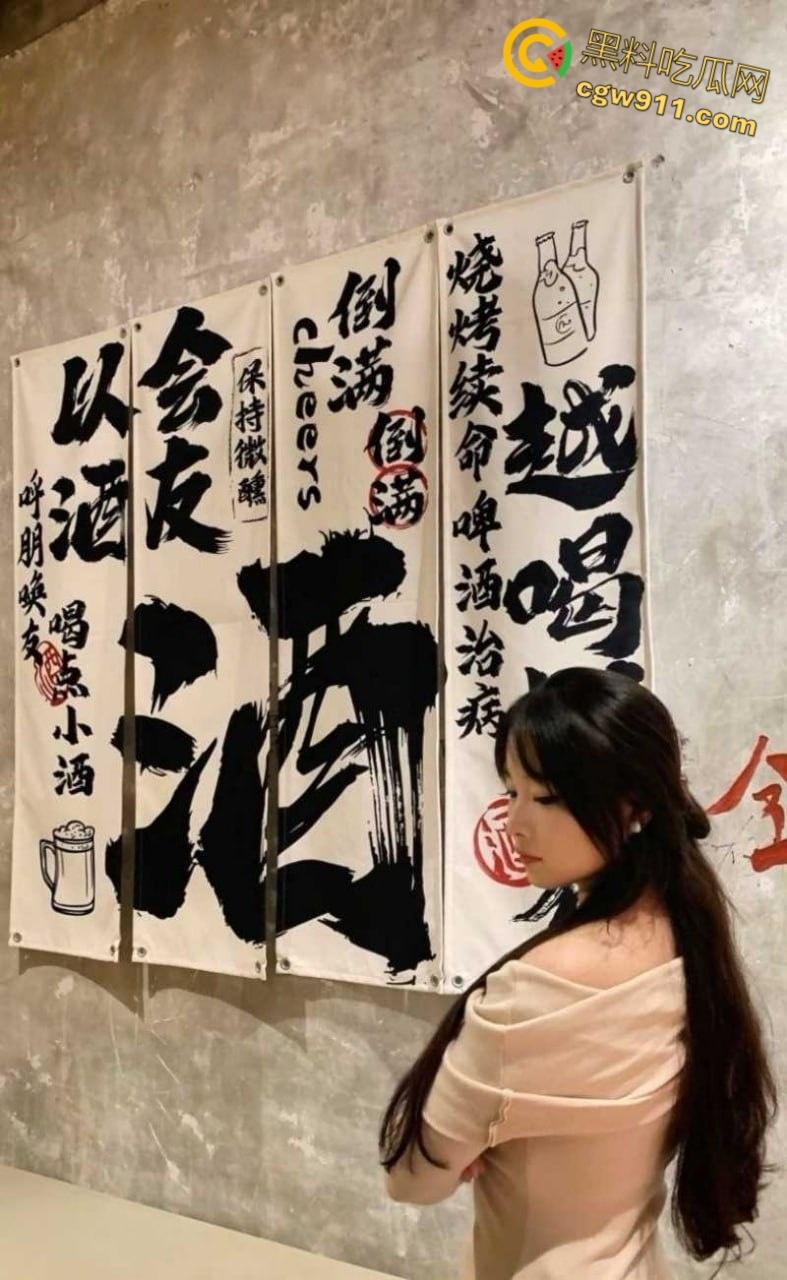 黑料吃瓜网
cgw911.com
以酒
呼朋唤友
喝点小酒
会友
保持微醺
倒满
cheers
倒满
酒
烧烤续命啤酒治病
越喝
酒